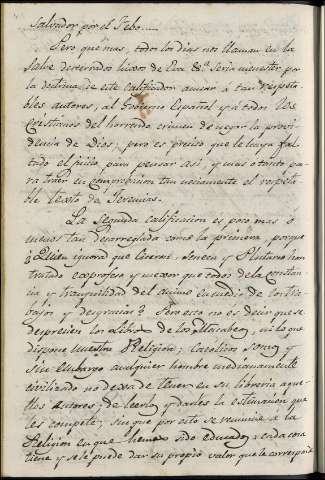 Salvador por el Febo.....
Pero que mas, todos los dias nos llaman en la
Salve desterrados hixos de Eva &ª. Seria menester por
la doctrina de este calificador acusar á tan respeta-
bles autores, al Gobierno Español y á todos los
Cristianos del horrendo crimen de negar la provi-
dencia de Dios, pero es preciso que le haya fal-
tado el juicio para pensar asi, y mas otanto pa-
ra traer en comprovacion tan neciamente el respeta-
ble texto de Jeremias.
La Segunda calificacion es poco mas ó
menos tan desarreglada como la primera, porque
¿Quien ignora que Ciceron, Seneca y Plutarco han
tratado exprofeso y mexor que todos de la constan-
cia y tranquilidad del animo en medio de los tra-
bajos y desgracias? Pero esto no es decir que se
desprecien los Libros de los Macabeos, ni lo que
dispone nuestra Religion; Catolicos somos y
sin embargo cualquier hombre medianamente
civilizado no dexa de tener en su libreria aque-
llos autores, de leerlos y darles la estimacion que
les compete; sin que por esto se renuncie á la
Religion en que hemos sido educados: cada cosa
tiene y se le puede dar su propio valor que le corresponde